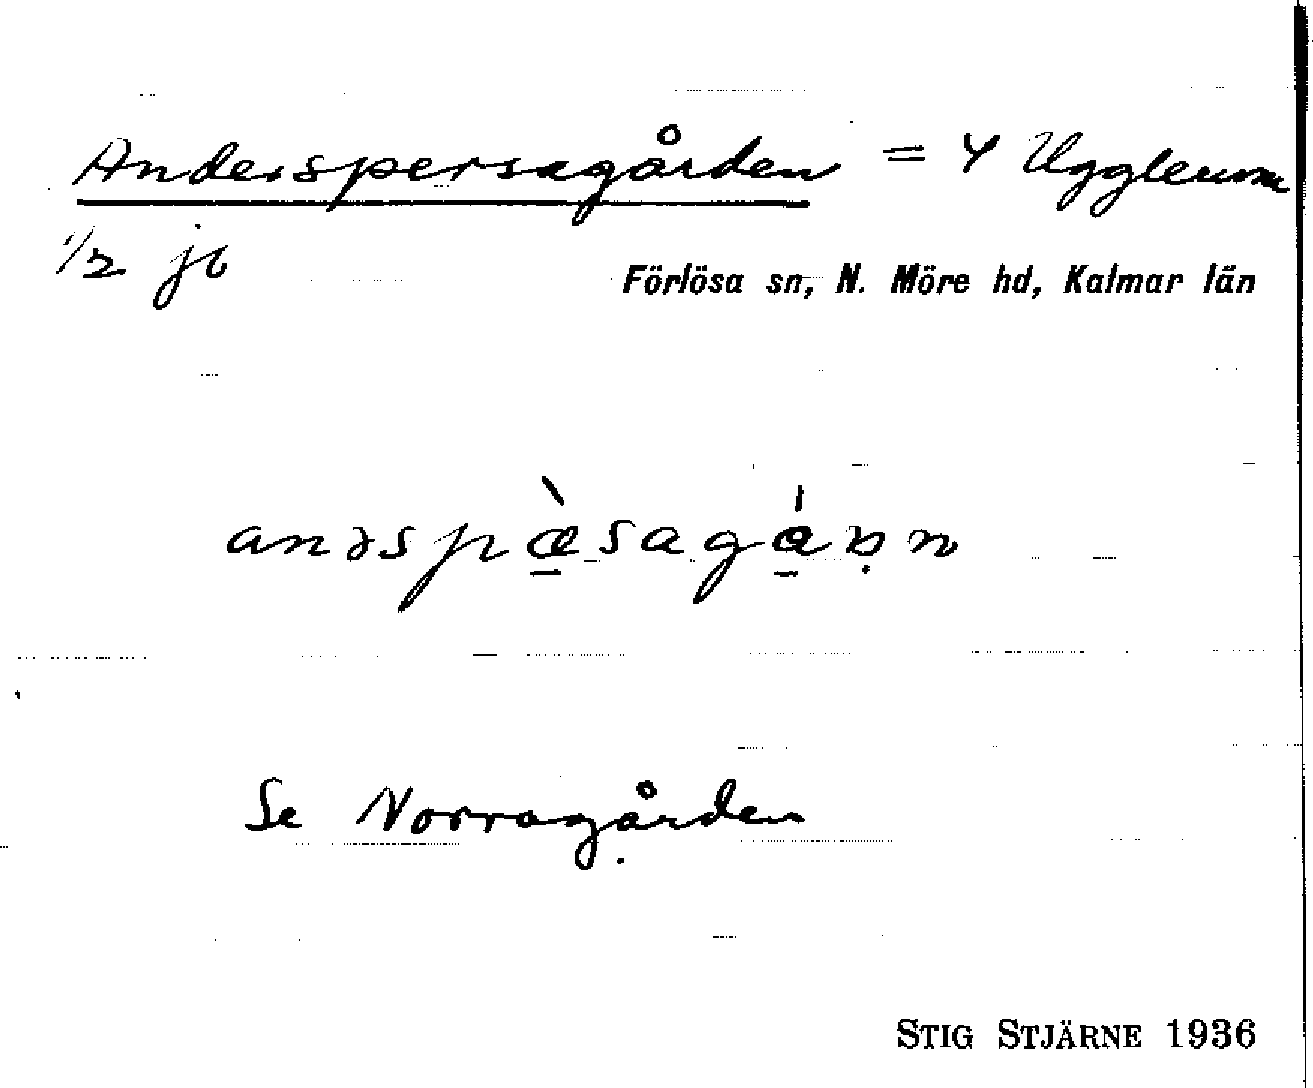 Anderspersagården = 4 Ugglerum
1/2 jo
Förlösa sn, N. Möre hd, Kalmar län
Se Norragården.
STIG STJÄRNE 1936